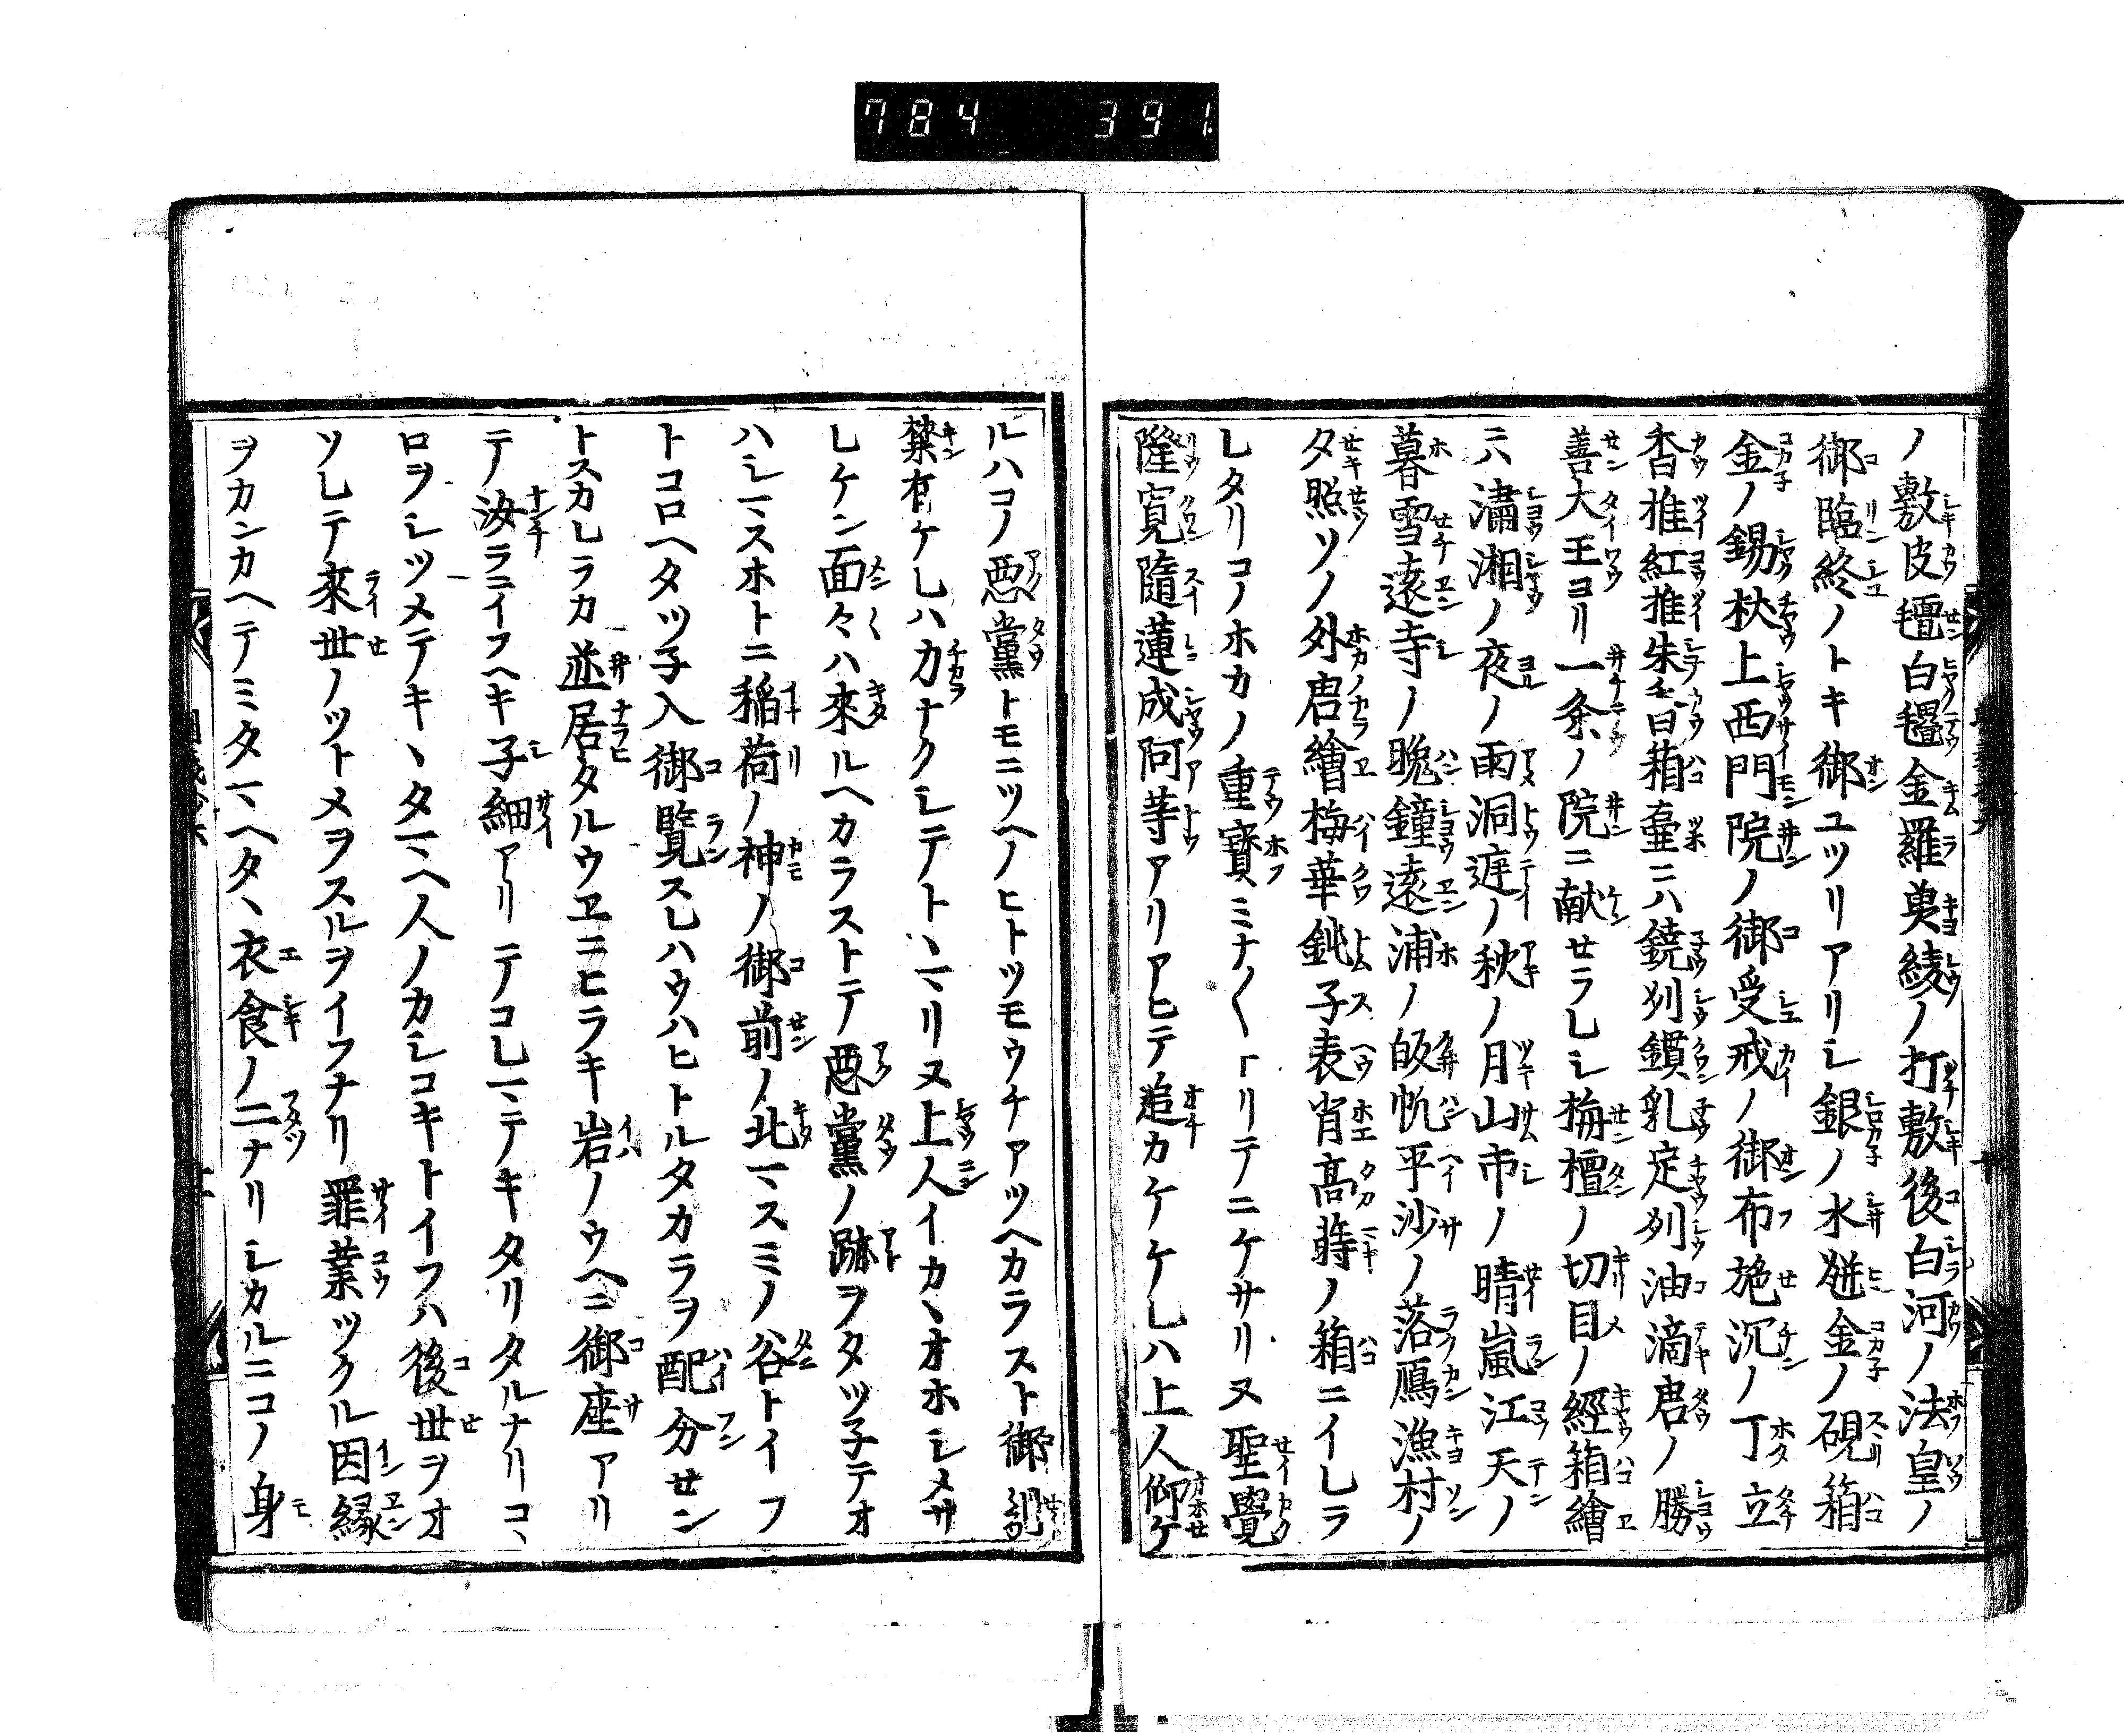 784 391
ノ敷皮氈白氎金羅奥綾ノ打敷後白河ノ法皇ノ
御臨終ノトキ御ユツリアリシ銀ノ水瓶金ノ硯箱
金ノ錫杖上西門院ノ御受戒ノ御布施沉ノ丁立
香推紅推朱香箱臺ニハ鐃列鑽乳定列油滴唐ノ勝
善大王ヨリ一条ノ院ニ献セラレシ栴檀ノ切目ノ經箱繪
ニハ瀟湘ノ夜ノ雨洞庭ノ秋ノ月山市ノ晴嵐江天ノ
暮雪遠寺ノ晩鐘遠浦ノ皈帆平沙ノ落鴈漁村ノ
夕照ソノ外唐繪梅華鈍子表背髙蒔ノ箱ニイレラ
レタリコノホカノ重寶ミナ〱トリテニケサリヌ聖覺
隆寛隨蓮成阿等アリアヒテ追カケケレハ上人仰ケ
ルハコノ惡黨トモニツヘノヒトツモウチアツヘカラスト御制
禁有ケレハカナクシテトヽマリヌ上人イカヽオホシメサ
レケン面々ハ來ルヘカラストテ惡黨ノ跡ヲタツ子テオ
ハシマスホトニ稲荷ノ神ノ御前ノ北マスミノ谷トイフ
トコロヘタツ子入御覧スレハウハヒトルタカラヲ配分せン
トスカレラカ並居タルウヱニヒラキ岩ノウヘニ御座アリ
テ汝ラニイフヘキ子細アリテコレマテキタリタルナリコヽ
ロヲシツメテキヽタマヘ人ノカシコキトイフハ後世ヲオ
ソレテ來世ノツトメヲスルヲイフナリ罪業ツクル因縁
ヲカンカヘテミタマヘタヽ衣食ノ二ナリシカルニコノ身